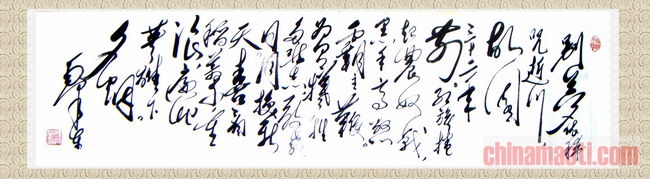 别梦依稀
咒逝川
故园
三十二年
前红旗捲
起农奴戟
黑手高悬
霸主鞭
为有犧牲
多壮志敢教
日月换新
天喜看
稻菽千重
浪遍地
英雄下
夕烟
chinamaoti.com